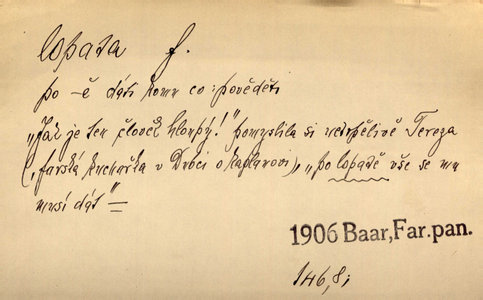 lopata f.
po -ě dáti komu co : pověděti
„Jak je ten člověk hloupý!" pomyslila si netrpělivě Tereza
(„farská kuchařka v Drbci o kaplanovi), „po lopatě vše se mu
musí dát" =
1906 Baar, Far. pan.
146,8;